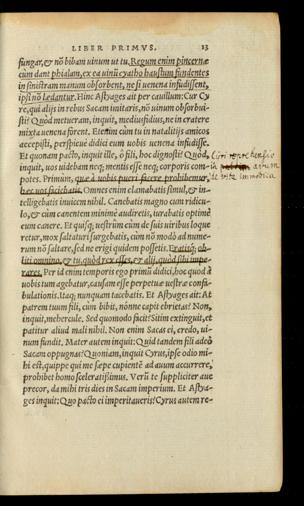 LIBER PRIMVS. 13
fungar, & nō bibam uinum ut tu. Regum enim pincernæ
cum dant phialam, ex ea uinū cyatho haustum fundentes
in sinistram manum obsorbent, ne si uenena infudissent,
ipsi nō lædantur. Hinc Astyages ait per cauillum: Cur Cy
re, qui alijs in rebus Sacam imitaris, nō uinum obsorbui-
sti? Quòd metueram, inquit, mediusfidius, ne in cratere
mixta uenena forent. Etenim cùm tu in natalitijs amicos
accepisti, perspicuè didici eum uobis uenena infudisse.
Et quonam pacto, inquit ille, ô fili, hoc dignosti? Quòd,
inquit, uos uidebam neq; mentis esse neq; corporis com-
potes. Primùm, quæ à uobis pueri facere prohibemur,
hæc uos faciebatis. Omnes enim clamabatis simul, & in-
telligebatis inuicem nihil. Canebatis magno cum ridicu-
lo, & cùm canentem minimè audiretis, iurabatis optimè
eum canere. Et quisq; uestrûm cùm de suis uiribus loque
retur, mox saltaturi surgebatis, cùm nō modò ad nume-
rum nō saltare, sed ne erigi quidem possetis. Eratisq; ob-
liti omnino, & tu, quòd rex esses, & alij, quòd sibi impe-
rares. Per id enim temporis ego primū didici, hoc quod à
uobis tum agebatur, causam esse perpetuæ uestræ confa-
bulationis. Itaq; nunquam tacebatis. Et Astyages ait: At
patrem tuum fili, cùm bibit, nónne capit ebrietas? Non,
inquit, mehercule. Sed quomodo facit? Sitim extinguit, et
patitur aliud mali nihil. Non enim Sacas ei, credo, ui-
num fundit. Mater autem inquit: Quid tandem fili adeò
Sacam oppugnas? Quoniam, inquit Cyrus, ipse odio mi-
hi est, quippe qui me sæpe cupientē ad auum accurrere,
prohibet homo sceleratissimus. Verū te suppliciter aue
precor, da mihi tris dies in Sacam imperium. Et Astya-
ges inquit: Quo pacto ei imperitaueris? Cyrus autem re-
Cyri reprehensio
in auum
de vita immodica